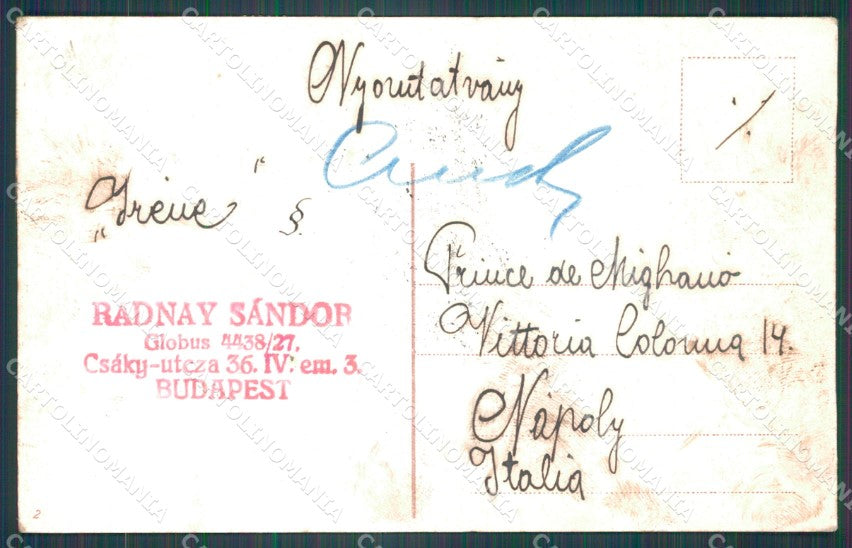 Nyomtatvány
"Irene" §.
RADNAY SÁNDOR
Globus 4438/27.
Csáky-utcza 36. IV. em. 3.
BUDAPEST
Prince de Mighano
Vittoria Colonna 14.
Nápoly
Italia
2
CARTOLINOMANIA